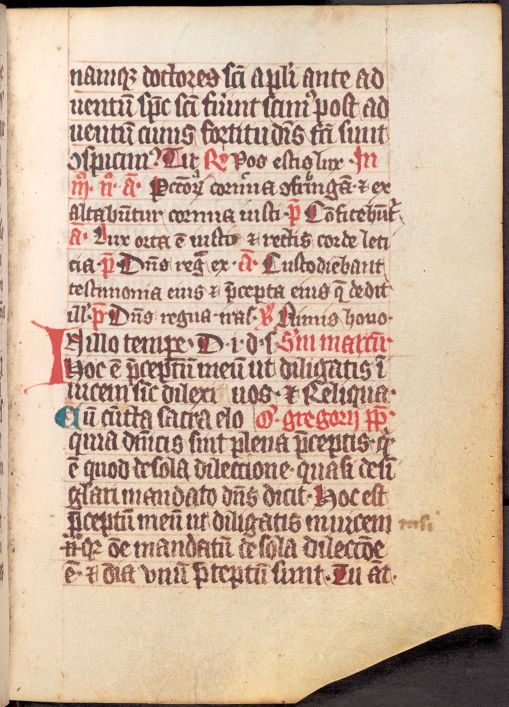 namq doctores sci apli ante ad
uentū spc sci firmi post ad
uentū cuius fortitudīs fci sunt
ꝯspicui Tu R Vos estis lux · In
iii · n · a · Pccoꝝ cornua ꝯfringā · ⁊ ex
altabūtur cornua iusti · p̄ Confitebūt̄
a · Lux orta ē iusto ⁊ rectis corde leti
cia · p̄ · Dn̄s reḡ ex · a · Custodiebant
testimonia eius ⁊ p̄cepta eius q̄ dedit
ill · p̄ Dn̄s regna · iras · V Nimis hono ·
In illo tempore · D · i · d · s · Sm̄ marcū
Hoc ē p̄ceptū meū ut diligatis ī
uicem sic̄ dilexi uos · ⁊ Reliqua ·
Cū cūcta sacra elo O · gregorii pp̄ ·
quia dn̄icis sint plena p̄ceptis · q̄
ē quod de sola dilectione · quasi de sī
glari mandato dn̄s dicit · Hoc est
p̄ceptū meū ut diligatis inuicem
n̄ · q̄ oē mandatū de sola dilecc̄oē
ē · ⁊ oīa unū p̄ceptū sunt · Tu āt ·